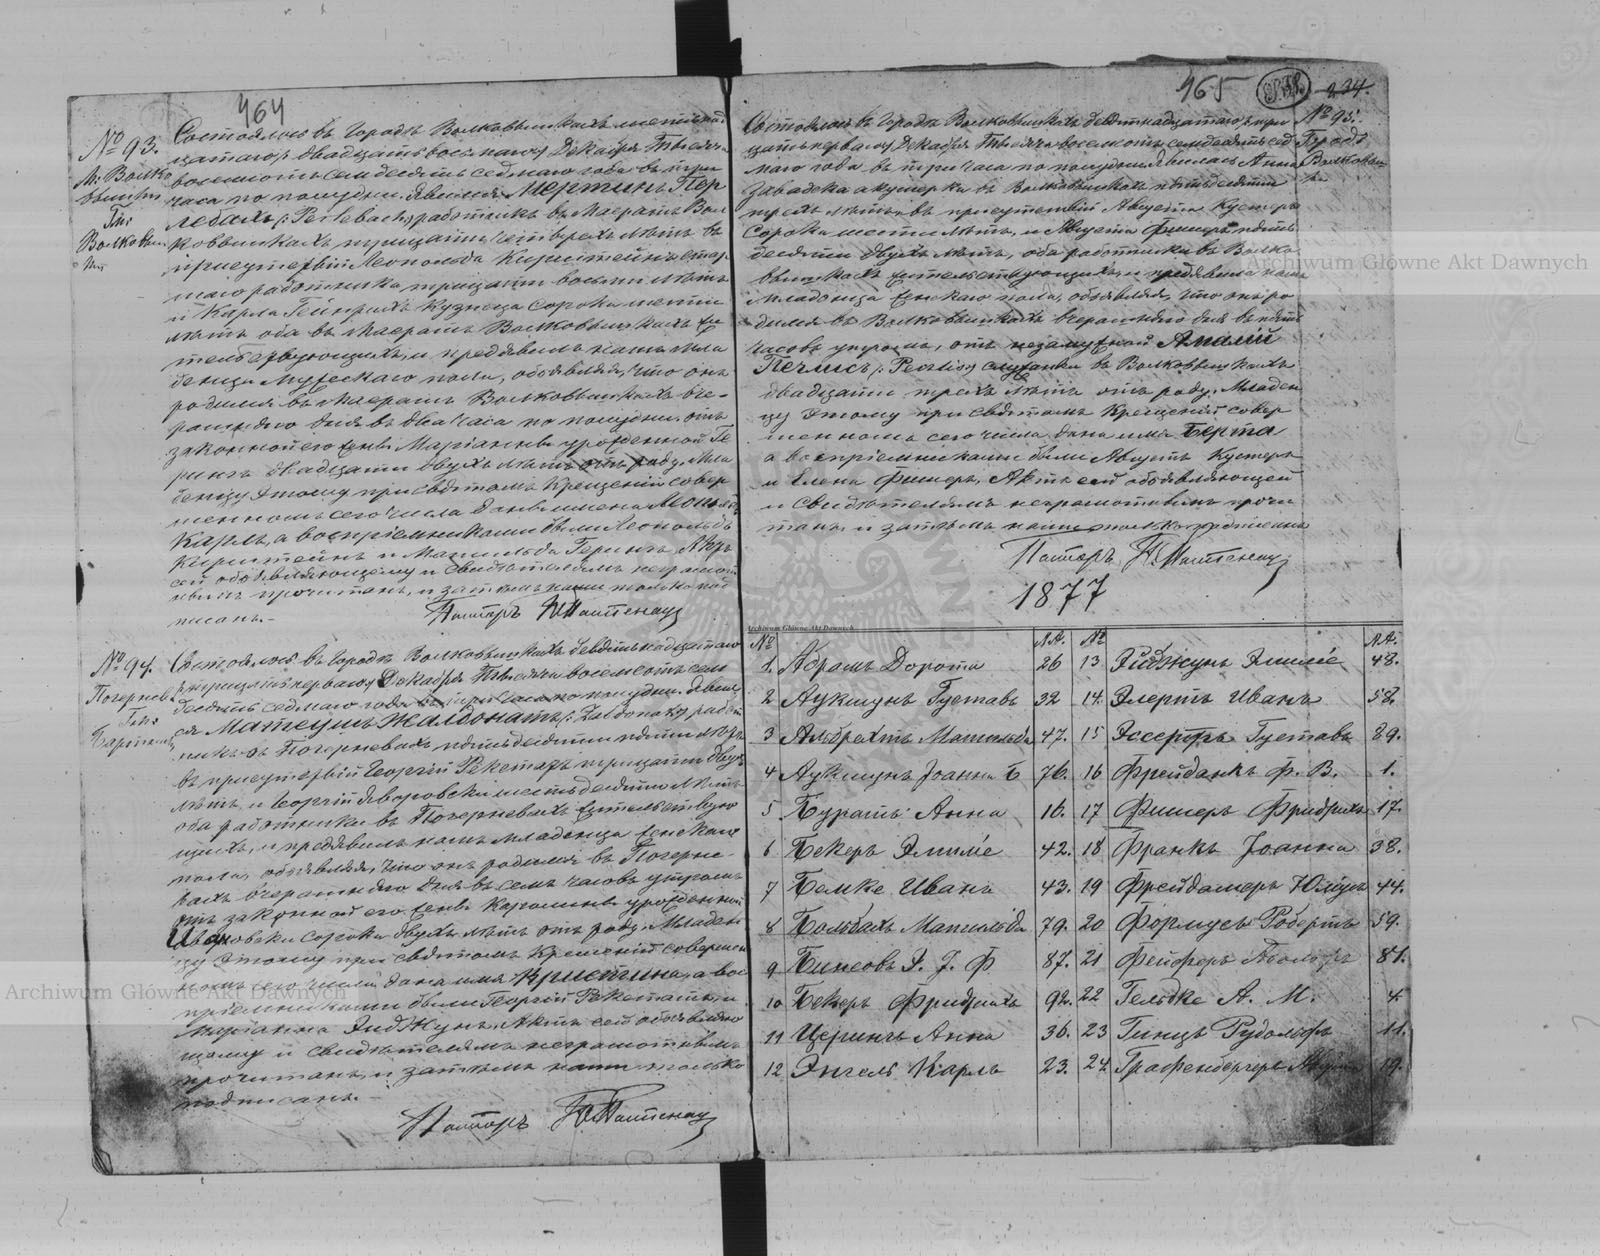 464
№ 93.
М. Волко
вышки
Гм.
Волковыш
ки
Состоялось въ Городѣ Волковышкахъ шестнад
цатаго/: двадцать восьмаго/ Декабря Тысяча
восемьсотъ семдесятъ седмаго года въ три
часа по полудни. Явился Мертинъ Пер
лебахъ /: Perlebach:/ работникъ въ Маератѣ Вол
ковышкахъ, тридцати четырехъ лѣтъ въ
присутствіи Леопольда Кирштейнъ стар
шаго работника, тридцати восьми лѣтъ
и Карла Гейнрихъ Кузнеца сорока шести
лѣтъ оба въ Маератѣ Волковышкахъ жи
тельствующихъ, и предъявилъ намъ мла
денца мужескаго пола, объявляя, что онъ
родился въ Маератѣ Волковышкахъ вче-
рашняго дня въ два часа по полудни. отъ
законной его жены Маріанны урожденной Ге
рингъ двадцати двухъ лѣтъ отъ роду. Мла
денцу этому при святомъ Крещеніи совер
шенномъ сего числа даны имена Леопольдъ
Карлъ, а воспріемниками были Леопольдъ
Кирштейнъ и Матильда Герингъ, Актъ
сей объявляющему и свидѣтелямъ неграмот
нымъ прочитанъ, и затѣмъ нами только под
писанъ.-
Пасторъ
№ 94.
Погернев
Гм.
Бартник
Состоялось въ Городѣ Волковышкахъ девятнадцатаго
/: тридцать перваго/ Декабря Тысяча восемьсотъ сем
десятъ седмаго года въ три часа по полудни. Явил
ся Матеушъ Жалдонатъ /: работ
никъ въ Погерневахъ, пятидесяти пяти лѣтъ
въ присутствіи Георгій Рекетатъ тридцати двухъ
лѣтъ, и Георгій Яворовски шестьдесяти лѣтъ
оба работники въ Погерневахъ жительствую
щихъ, и предъявилъ намъ младенца женскаго
пола, объявляя, что онъ родился въ Погерне-
вахъ вчерашняго дня въ семь часовъ утромъ
отъ законной его жены Каролины урожденной
Ивановски сорока двухъ лѣтъ отъ роду. Младен
цу этому при святомъ Крещеніи совершен
номъ сего числа дано имя Кристина, а вос
пріемниками были Георгій Рекетатъ, и
Маріанна Эйджунъ. Актъ сей объявляю
щему и свидѣтелямъ неграмотнымъ
прочитанъ, и затѣмъ нами только
подписанъ.-
Пасторъ
465
234.
№ 95.
Городъ
Волковыш
ки
Состоялось въ Городѣ Волковышкахъ девятнадцатаго/: три
дцать перваго/ Декабря Тысяча восемьсотъ семдесятъ сед
маго года въ три часа по полудни. Явилась Анна
Завадска акушерка въ Волковышкахъ пятидесяти
трехъ лѣтъ, въ присутствіи Августа Кустеръ
сорока шести лѣтъ, и Августа Фишеръ пять
десяти двухъ лѣтъ, оба работники въ Волко
вышкахъ жительствующихъ, и предъявила намъ
младенца женскаго пола, объявляя, что онъ ро
дился въ Волковышкахъ вчерашняго дня въ пять
часовъ утромъ, отъ незамужной Амаліи
служанки въ Волковышкахъ
двадцати трехъ лѣтъ отъ роду. Младен
цу этому при святомъ Крещеніи совер
шенномъ сего числа, дано имя Берта
а воспріемниками были Августъ Кустеръ
и Елена Фишеръ, Актъ сей объявляющей
и свидѣтелямъ неграмотнымъ прочи
танъ, и затѣмъ нами только подписанъ
Пасторъ
1877
№ № А. № № А.
1. Абрамъ Дорота 26 13 Эйджунъ Эмиліе 48.
2 Аукшунъ Густавъ 32 14. Элертъ Иванъ 58.
3 Альбрехтъ Матильда 47. 15 Эссертъ Густавъ 89.
4 Аукшунъ Іоанна Б 76. 16 Фрейданкъ Ф. В. 1.
5 Буратъ Анна 16. 17 Фишеръ Фридрихъ 17.
6 Бекеръ Эмиліе 42. 18 Франкъ Іоанна 38.
7 Бемке Иванъ 43. 19 Фрейдамеръ Юліусъ 44.
8 Больбахъ Матильда 79. 20 Формусъ Робертъ 59.
9 Бинсовъ Э. Г. Ф. 87. 21 Фейферъ Адольфъ 81.
10 Бекеръ Фридрихъ 92. 22 Гельтке А. М. 4.
11 Церингъ Анна 36. 23 Гинцъ Рудольфъ 11.
12 Энгель Карлъ 23. 24 Графенбергеръ 19.
Archiwum Główne Akt Dawnych
Archiwum Główne Akt Dawnych
Archiwum Główne Akt Dawnych